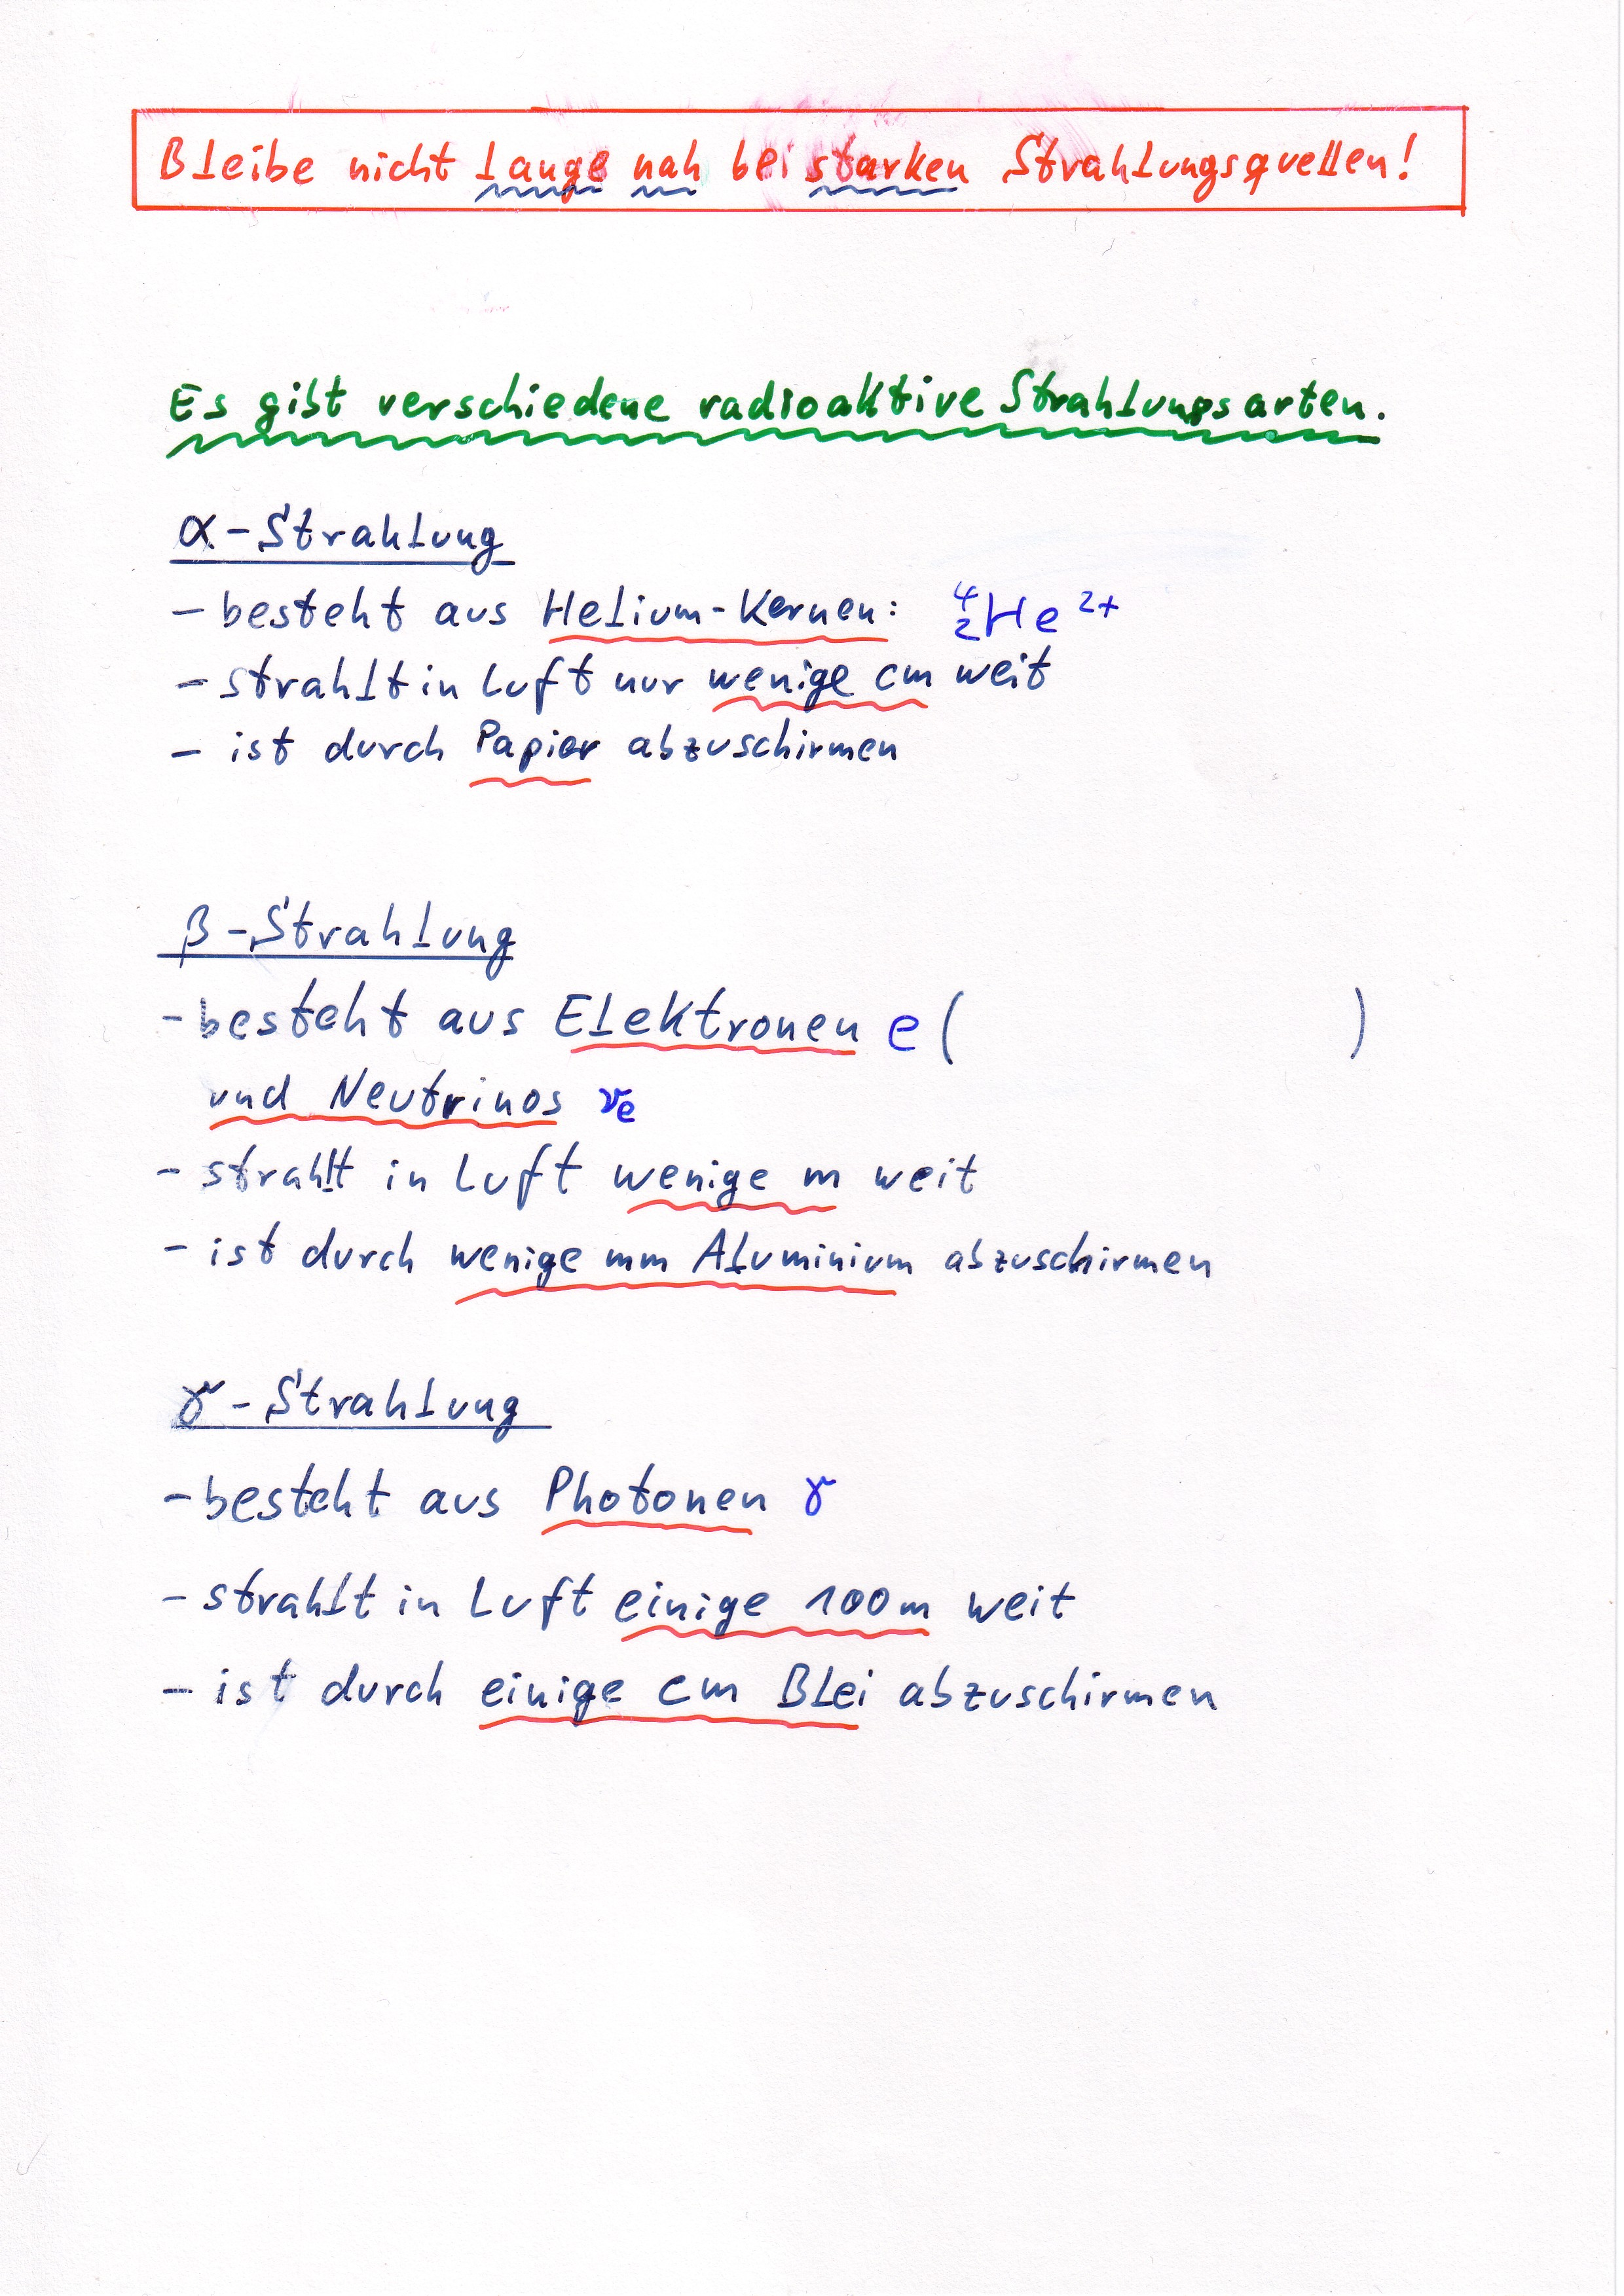 Bleibe nicht lange nah bei starken Strahlungsquellen!
Es gibt verschiedene radioaktive Strahlungsarten.
α-Strahlung
- besteht aus Helium-Kernen: ⁴₂He²⁺
- strahlt in Luft nur wenige cm weit
- ist durch Papier abzuschirmen
β-Strahlung
- besteht aus Elektronen e ( )
und Neutrinos νe
- strahlt in Luft wenige m weit
- ist durch wenige mm Aluminium abzuschirmen
γ-Strahlung
- besteht aus Photonen γ
- strahlt in Luft einige 100m weit
- ist durch einige cm Blei abzuschirmen